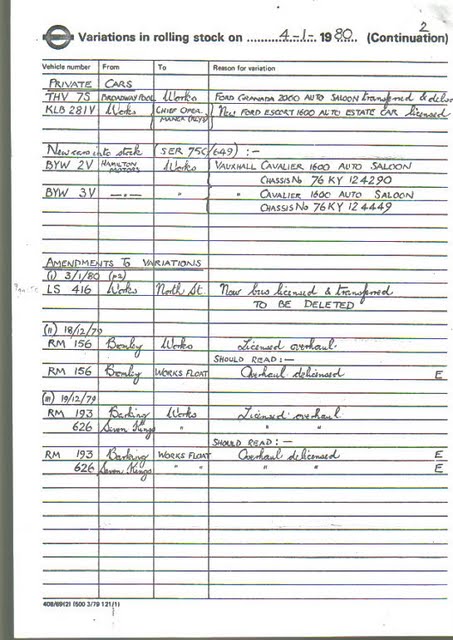 2
Variations in rolling stock on 4-1-1980 (Continuation)
Vehicle number From To Reason for variation
PRIVATE CARS
THV 7S BROADWAY POOL Works FORD GRANADA 2000 AUTO SALOON transferred & delic
KLB 281V Works CHIEF OPER. New FORD ESCORT 1600 AUTO ESTATE CAR licensed
New cars into stock (SER 75C/649) :-
BYW 2V HAMILTON MOTORS Works VAUXHALL CAVALIER 1600 AUTO SALOON
CHASSIS No 76 KY 124290
BYW 3V —·— " " CAVALIER 1600 AUTO SALOON
CHASSIS No 76 KY 124449
AMENDMENTS TO VARIATIONS
(i) 3/1/80 (p2)
LS 416 Works North St. New bus licensed & transferred
TO BE DELETED
(ii) 18/12/79
RM 156 Bromley Works Licensed overhaul
SHOULD READ :-
RM 156 Bromley WORKS FLOAT Overhaul delicensed E
(iii) 19/12/79
RM 193 Barking Works Licensed overhaul
626 Seven Kings " " "
SHOULD READ :-
RM 193 Barking WORKS FLOAT Overhaul delicensed E
626 Seven Kings " " " " E
408/89(2) (500 3/79 121/1)